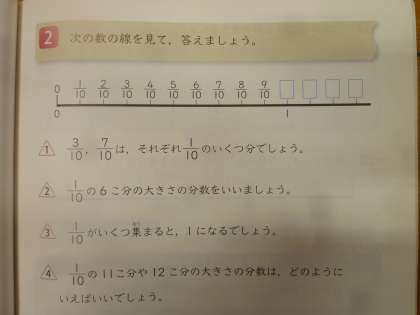 2 次の数の線を見て，答えましょう。
0 1/10 2/10 3/10 4/10 5/10 6/10 7/10 8/10 9/10
0 1
1 3/10，7/10は，それぞれ1/10のいくつ分でしょう。
2 1/10の6こ分の大きさの分数をいいましょう。
3 1/10がいくつ集まると，1になるでしょう。
4 1/10の11こ分や12こ分の大きさの分数は，どのように
いえばいいでしょう。